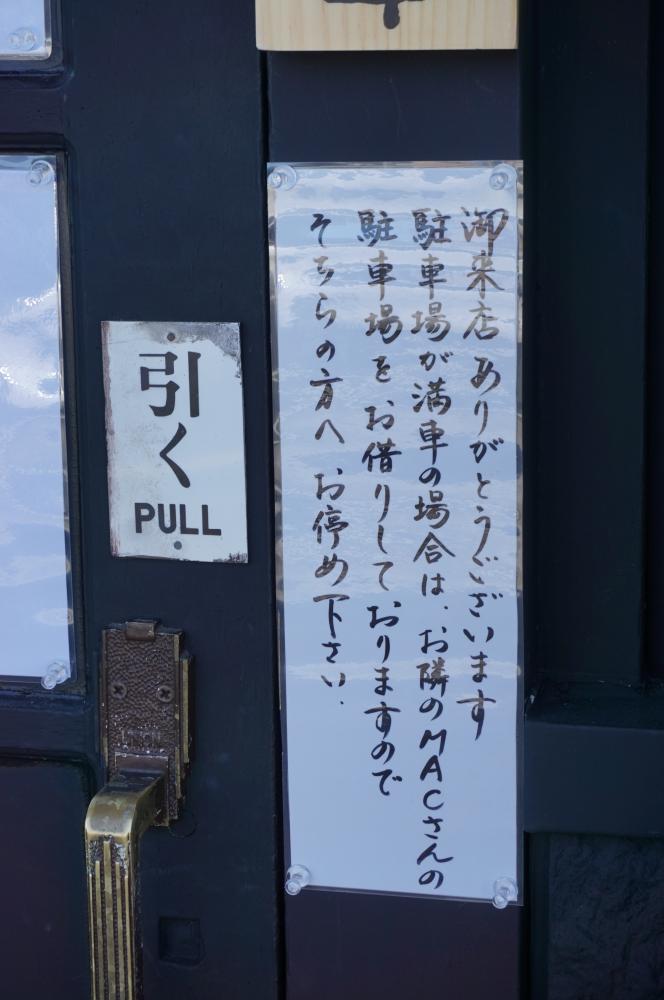 御来店ありがとうございます
駐車場が満車の場合は、お隣のMACさんの
駐車場をお借りしておりますので
そちらの方へお停め下さい.
引く
PULL